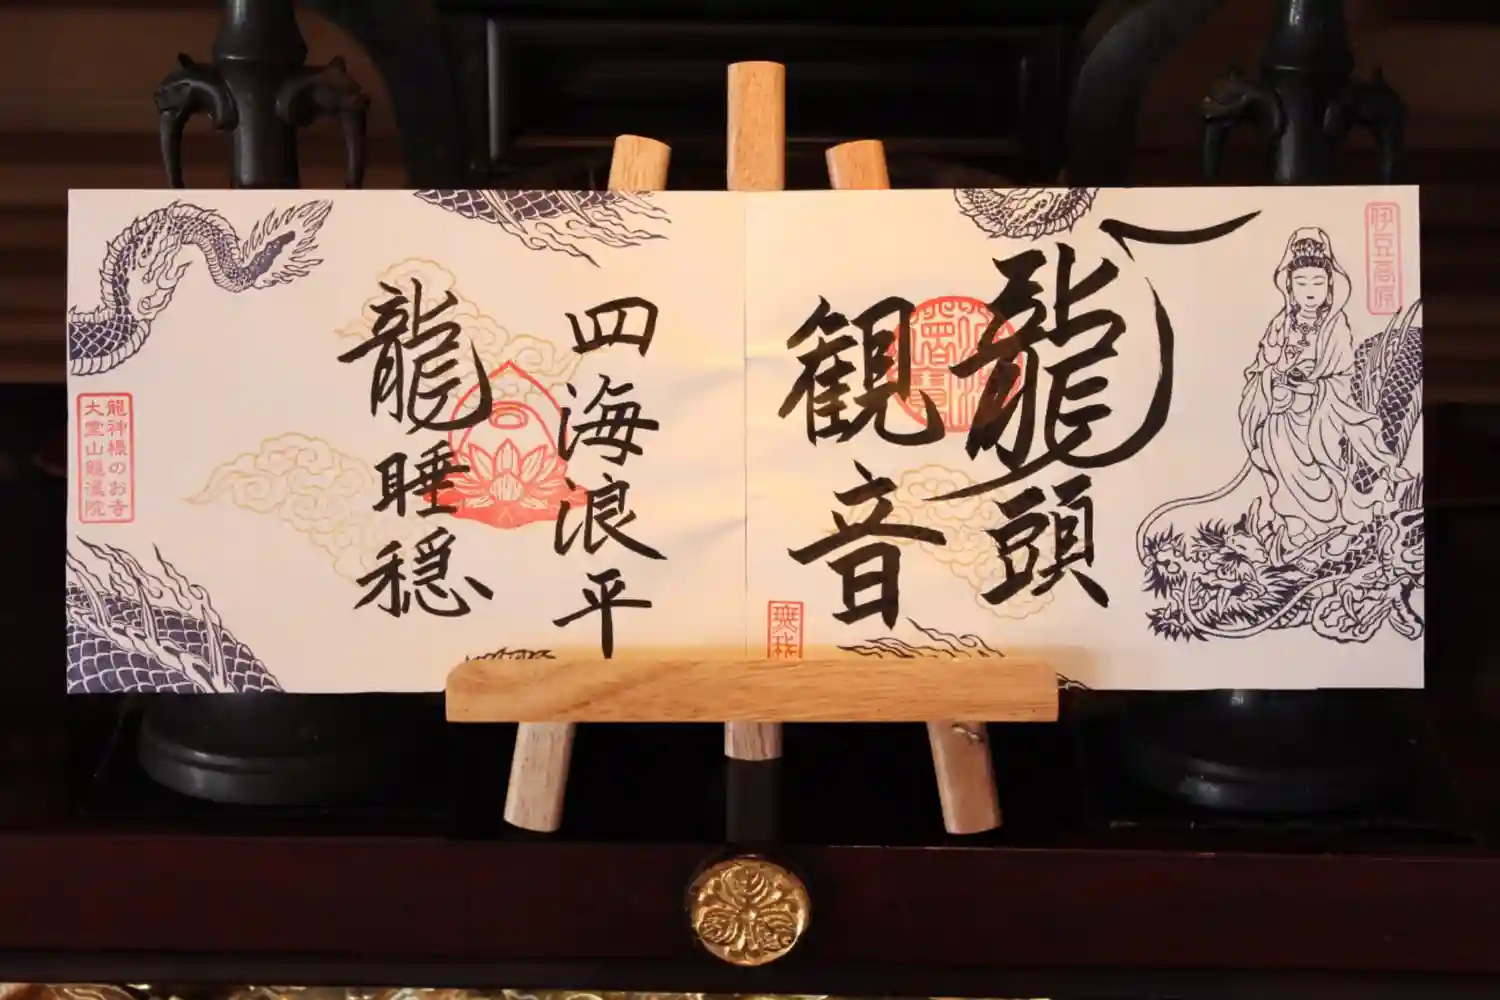 伊豆高原
龍頭
観音
四海浪平
龍睡穏
龍神様のお寺
大霊山龍渓院